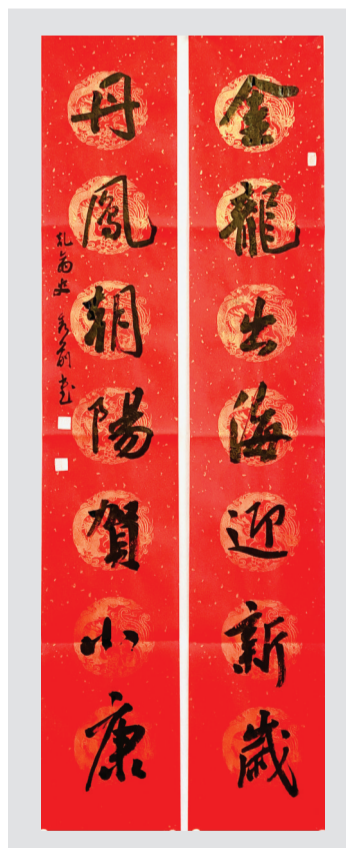 金龍出海迎新歲
丹鳳朝陽賀小康